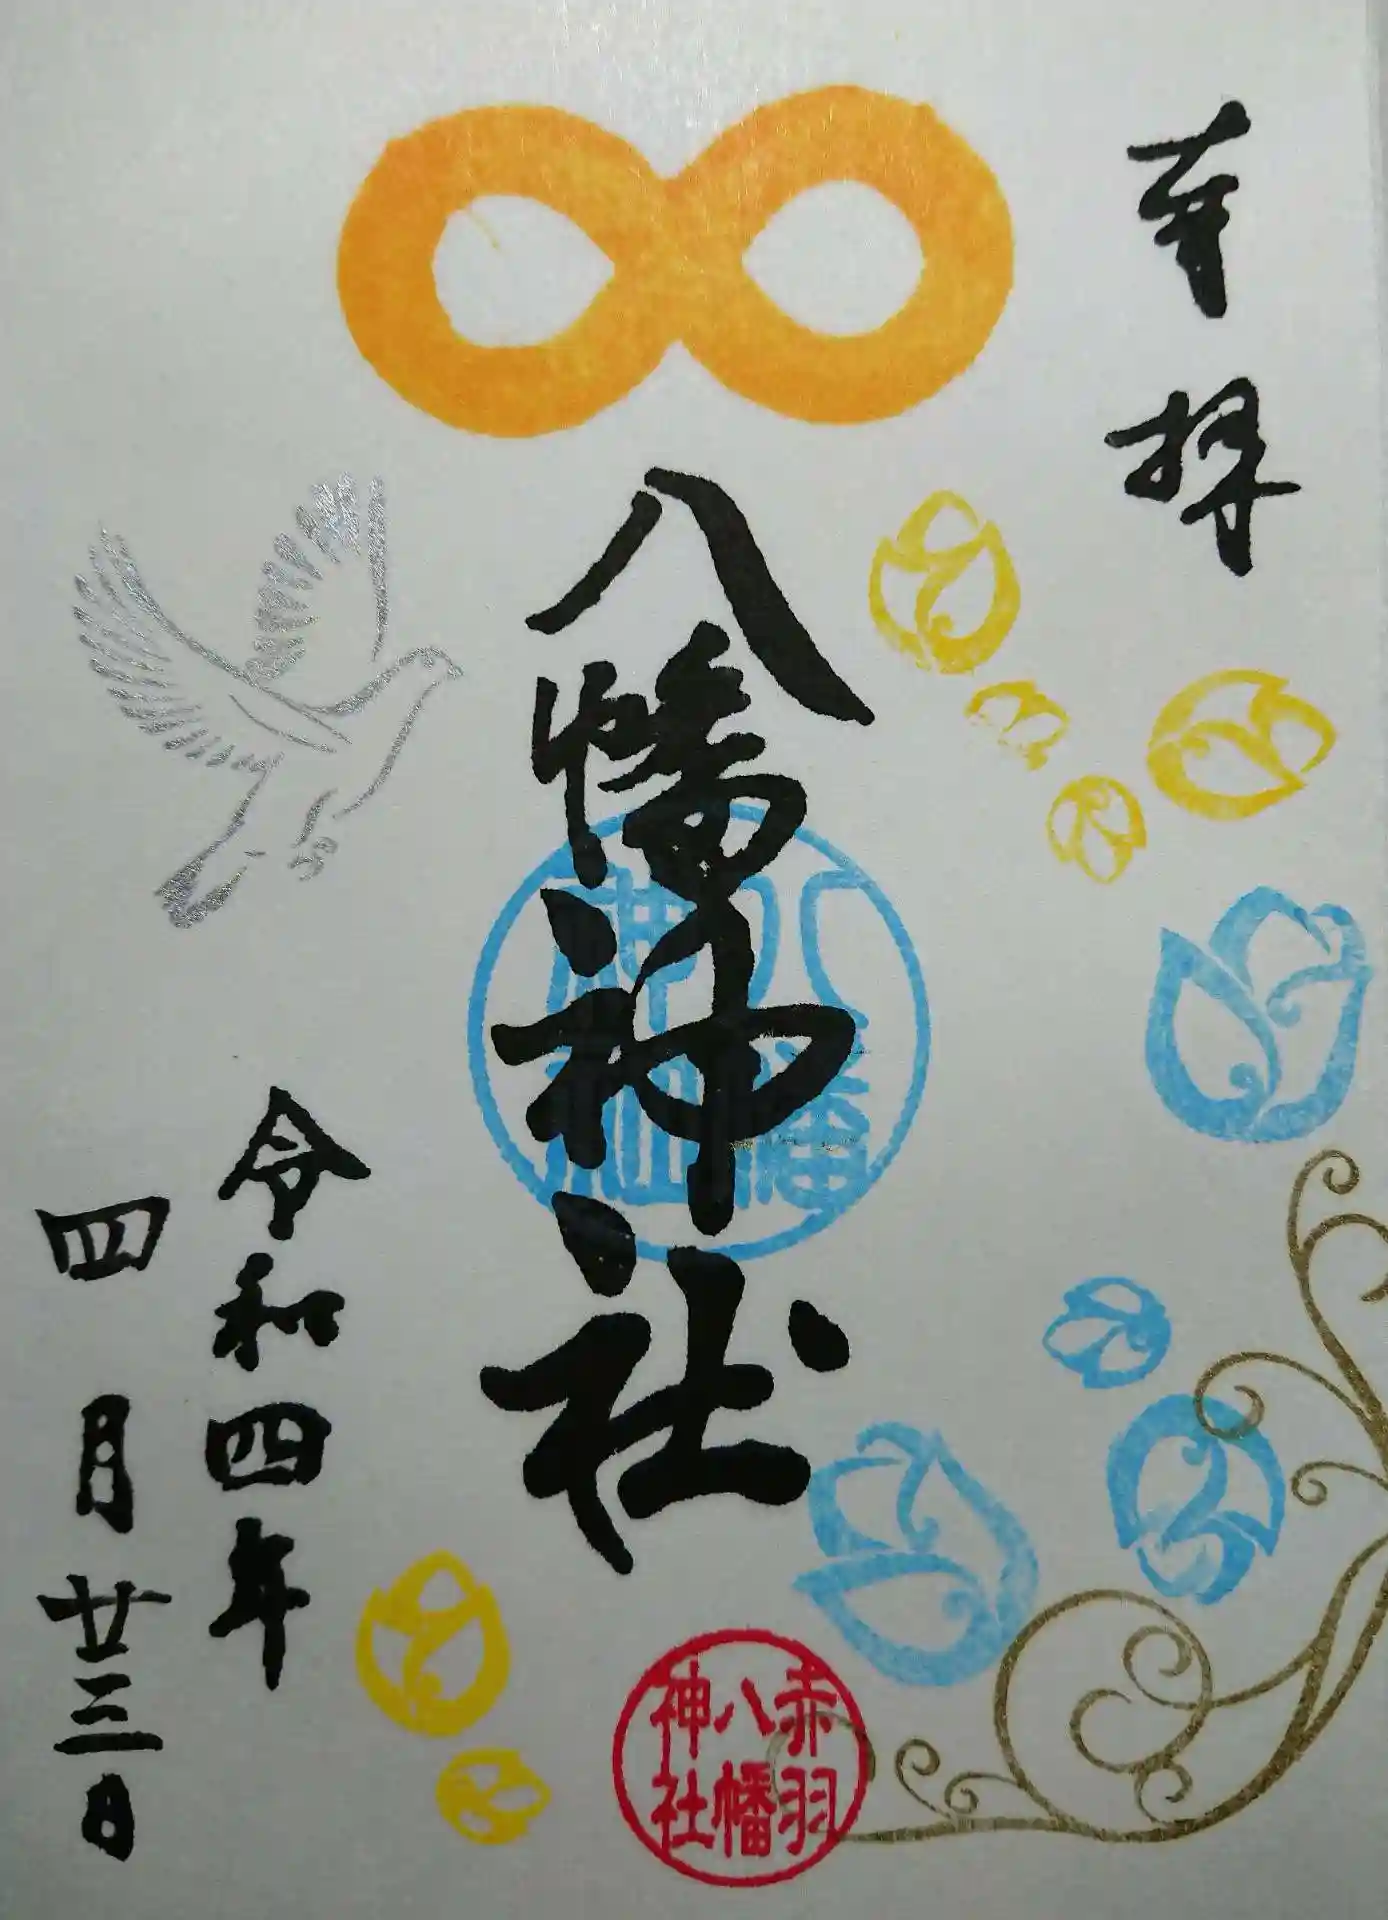 奉拝
八幡神社
八幡
神社
令和四年
四月廿三日
赤羽
八幡
神社